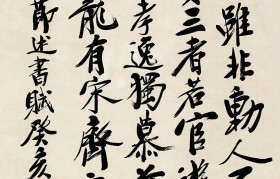 雖非動人
三者若官
孝逸獨慕
龍有宋齊
節述書賦癸亥